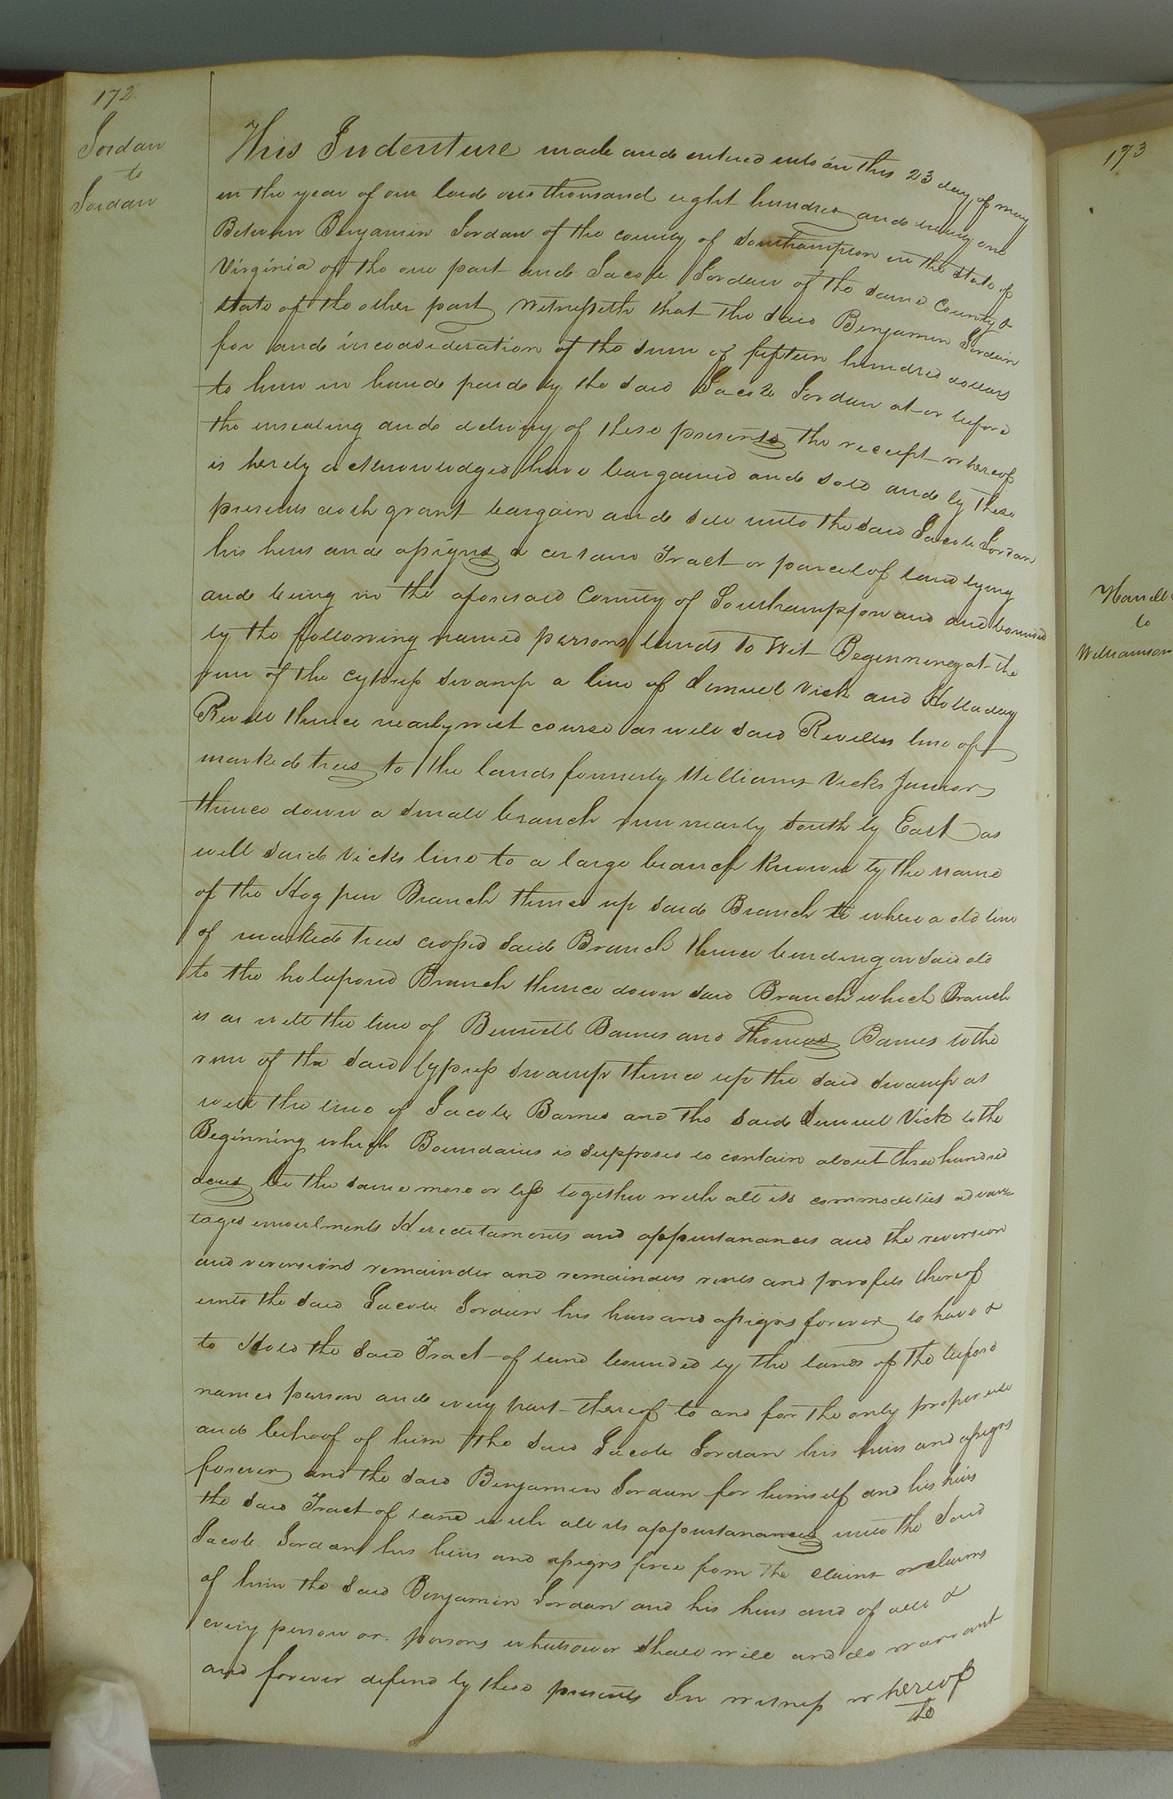 172
Jordan
to
Jordan
This Indenture made and entered into on this 23 day of may
in the year of our lord one thousand eight hundred and twenty one
Between Benjamin Jordan of the county of Southampton in the State of
Virginia of the one part and Jacob Jordan of the same County &
state of the other part Witnesseth that the said Benjamin Jordan
for and in consideration of the sum of fifteen hundred dollars
to him in hand paid by the said Jacob Jordan at or before
the ensealing and delivery of these presents the receipt whereof
is hereby acknowledged have bargained and sold and by these
presents doth grant bargain and sell unto the said Jacob Jordan
his heirs and assigns a certain Tract or parcel of land lying
and being in the aforesaid County of Southampton and and bounded
by the following named persons lands To Wit Beginning at the
run of the Cypress Swamp a line of Simuel Vick and Holladay
Revell thence nearly west course as well said Revells line of
marked trees to the lands formerly Williams Vicks Junior
thence down a small branch run nearly South by East as
well said Vicks line to a large branch known by the name
of the Hog pen Branch thence up said Branch to where a old line
of marked trees cross'd said Branch thence binding on said old
to the Branch thence down said Branch which Branch
is as well the line of Bennett Barnes and Thomas Barnes to the
run of the said Cypress Swamp thence up the said swamp as
well the line of Jacob Barnes and the said Simuel Vick to the
Beginning which Boundaries is supposed to contain about three hundred
acres be the same more or less together with all its commodities advan-
tages emoulments Hereditaments and appurtanances and the reversion
and reversions remainder and remainders rents and proffits thereof
unto the said Jacob Jordan his heirs and assigns forever to have &
to Hold the said Tract of land bounded by the lands of the before
named person and every part thereof to and for the only proper use
and behoof of him the said Jacob Jordan his heirs and assigns
forever and the said Benjamin Jordan for himself and his heirs
the said Tract of land with all its appurtanances unto the said
Jacob Jordan his heirs and assigns free from the claim or claims
of him the said Benjamin Jordan and his heirs and of all &
every person or persons whatsoever shall will and do warrant
and forever defend by these presents In witness whereof
173
to
Williamson